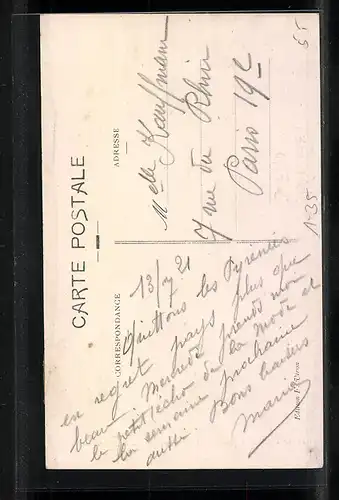 CARTE POSTALE
CORRESPONDANCE
ADRESSE
13/7 21
Quittons les Pyrénées
en regret pays plus que
beau. Mercredi prends moi
le petit écho de la Mode et
la semaine prochaine
aussi. Bons baisers
Marie
Melle Kauffmann
7 rue du Rhin
Paris 19e
55
1-35